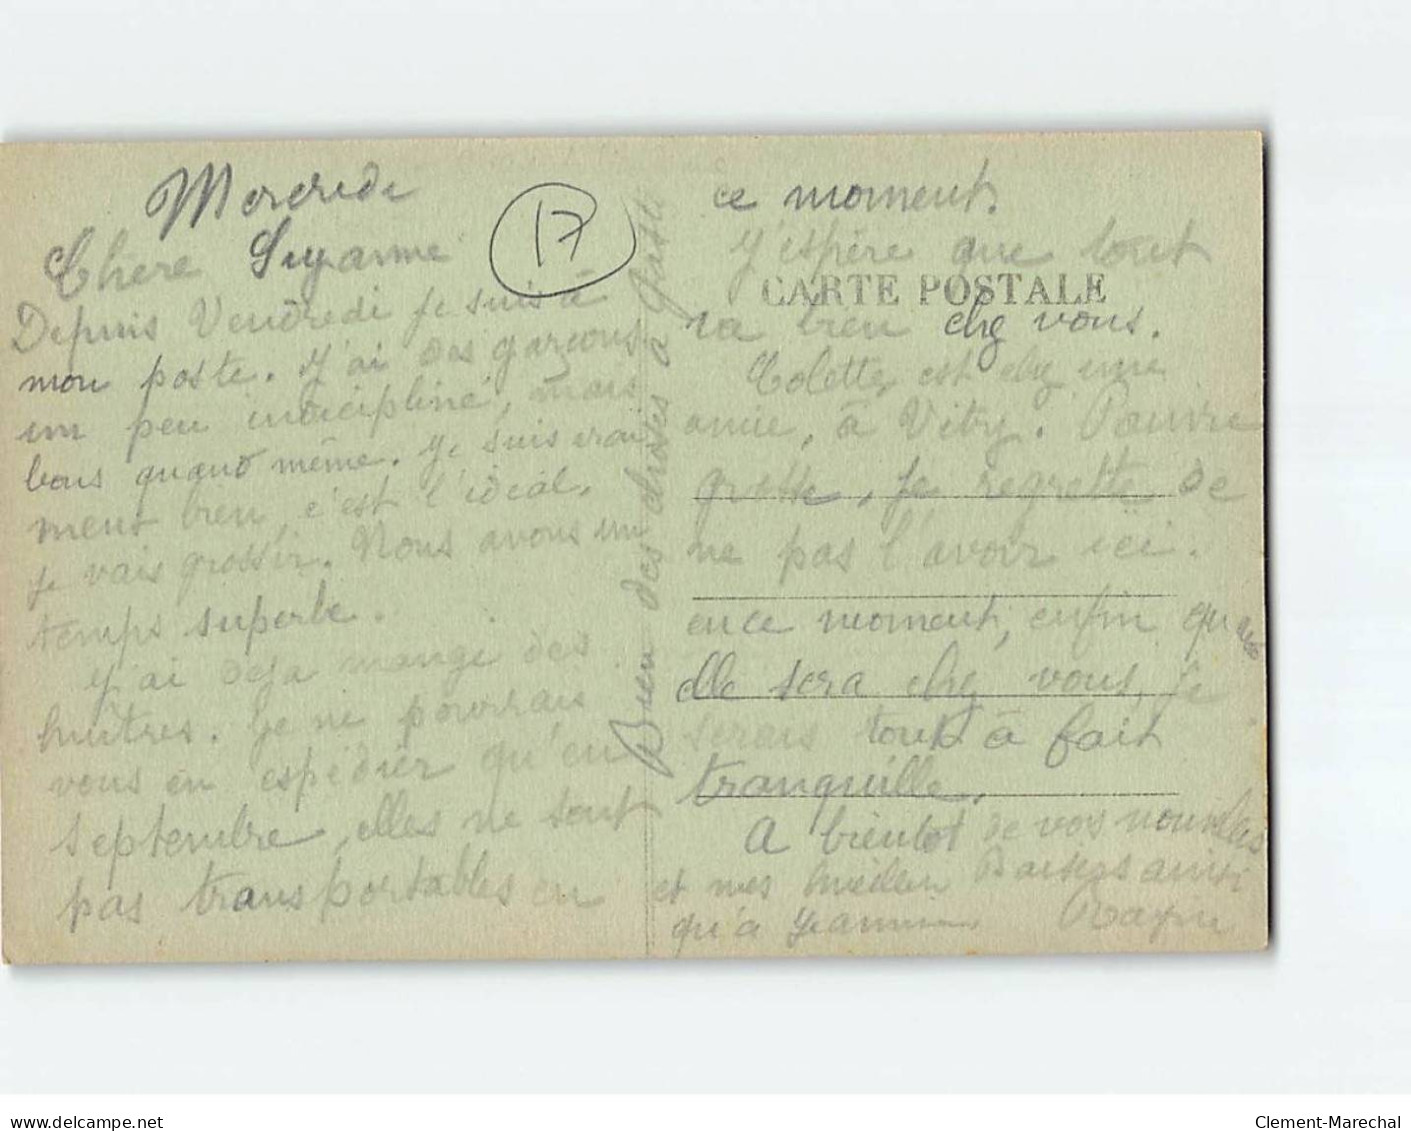 Mercredi
17
Chère Suzanne
Depuis Vendredi je suis à
mon poste. J'ai des garçons
un peu indicipliné, mais
bons quand même. Je suis vrai
ment bien, c'est l'idéal,
je vais grossir. Nous avons un
temps superbe.
J'ai déja mangé des
huîtres. Je ne pourrais
vous en espédier qu'en
septembre, elles ne sont
pas transportables en
ce moment.
J'espère que tout
CARTE POSTALE
va bien chez vous.
Colette, est chez une
amie, à Vitry. Pauvre
grosse, je regrette de
ne pas l'avoir ici.
en ce moment, enfin quand
elle sera chez vous, je
serais tout à fait
tranquille.
A bientot de vos nouvelles
et mes meilleurs Baisers ainsi
qu'à Jeannine
Bien des choses à
delcampe.net
Clement-Marechal